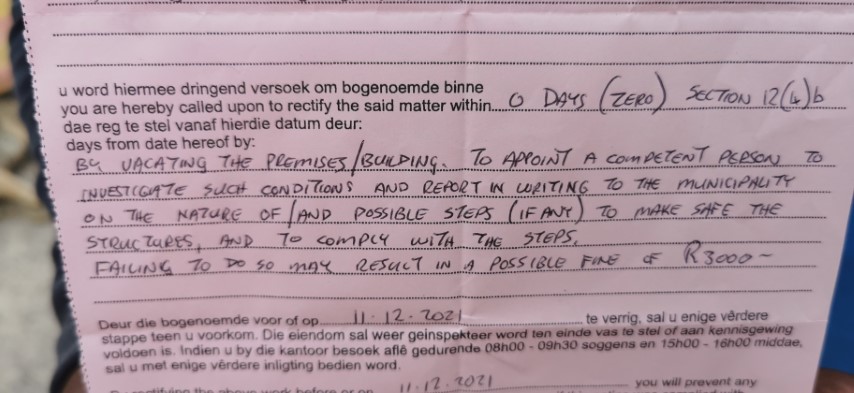 u word hiermee dringend versoek om bogenoemde binne
you are hereby called upon to rectify the said matter within....0 DAYS (ZERO) SECTION 12(4)b
dae reg te stel vanaf hierdie datum deur:
days from date hereof by:
BY VACATING THE PREMISES/BUILDING. TO APPOINT A COMPETENT PERSON TO
INVESTIGATE SUCH CONDITIONS AND REPORT IN WRITING TO THE MUNICIPALITY
ON THE NATURE OF/AND POSSIBLE STEPS (IF ANY) TO MAKE SAFE THE
STRUCTURES, AND TO COMPLY WITH THE STEPS.
FAILING TO DO SO MAY RESULT IN A POSSIBLE FINE OF R3000-
Deur die bogenoemde voor of op 11.12.2021 te verrig, sal u enige vêrdere
stappe teen u voorkom. Die eiendom sal weer geinspekteer word ten einde vas te stel of aan kennisgewing
voldoen is. Indien u by die kantoor besoek aflê gedurende 08h00 - 09h30 soggens en 15h00 - 16h00 middae,
sal u met enige vêrdere inligting bedien word.
11.12.2021 you will prevent any